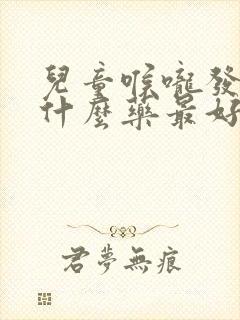 兒童喉嚨發
什麼藥最好
君夢無痕